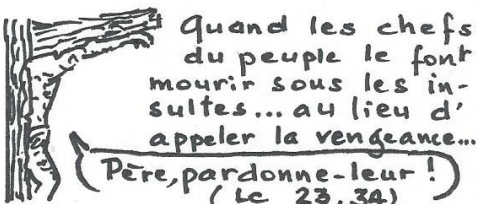 Quand les chefs
du peuple le font
mourir sous les in-
sultes... au lieu d'
appeler la vengeance...
Père, pardonne-leur !
(Lc 23,34)